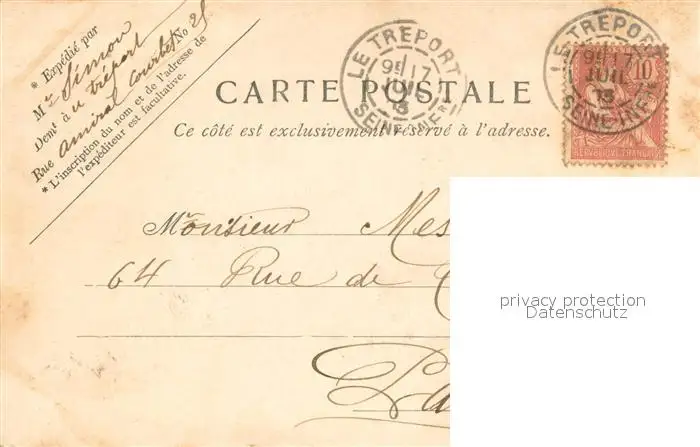 * Expédié par
Mr Simon
Demt à u tréport
Rue amiral Courbet No 25
* L'inscription du nom et de l'adresse de
l'expéditeur est facultative.
LE TRÉPORT
9E 17
JUIL
03
SEINE-INFRE
LE TRÉPORT
9E 17
JUIL
03
SEINE-INFRE
10
REPUBLIQUE FRANÇAISE
CARTE POSTALE
Ce côté est exclusivement réservé à l'adresse.
Monsieur Mes
64 Rue de
privacy protection
Datenschutz